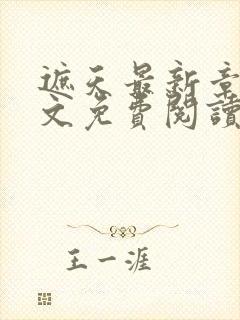 遮天最新章
文免費閱讀
王一涯